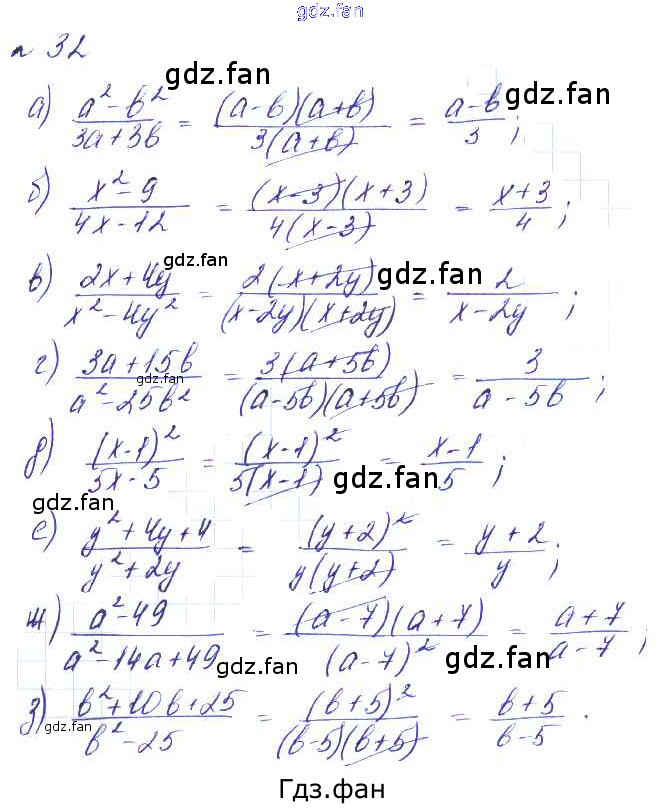 gdz.fan
№ 32
gdz.fan gdz.fan
а) (a²-b²)/(3a+3b) = ((a-b)(a+b))/(3(a+b)) = (a-b)/3 ;
б) (x²-9)/(4x-12) = ((x-3)(x+3))/(4(x-3)) = (x+3)/4 ;
gdz.fan gdz.fan
в) (2x+4y)/(x²-4y²) = (2(x+2y))/((x-2y)(x+2y)) = 2/(x-2y) ;
г) (3a+15b)/(a²-25b²) = (3(a+5b))/((a-5b)(a+5b)) = 3/(a-5b) ;
gdz.fan
д) (x-1)²/(5x-5) = (x-1)²/(5(x-1)) = (x-1)/5 ;
gdz.fan gdz.fan
е) (y²+4y+4)/(y²+2y) = (y+2)²/(y(y+2)) = (y+2)/y ;
ж) (a²-49)/(a²-14a+49) = ((a-7)(a+7))/(a-7)² = (a+7)/(a-7) ;
gdz.fan gdz.fan
з) (b²+10b+25)/(b²-25) = (b+5)²/((b-5)(b+5)) = (b+5)/(b-5) .
gdz.fan
Гдз.фан